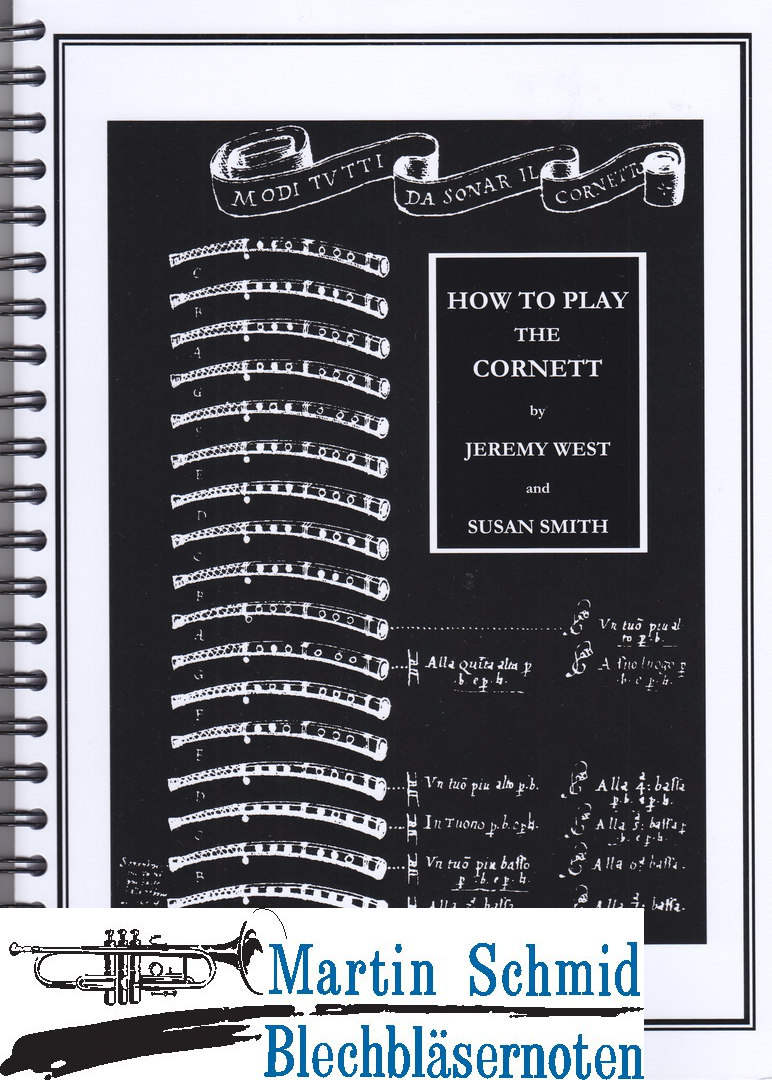 MODI TVTTI DA SONAR IL CORNETTO
HOW TO PLAY
THE
CORNETT
by
JEREMY WEST
and
SUSAN SMITH
C
B
A
G
E
D
C
B
A
G
F
E
D
C
B
Vn tuō piu al
to p. b.
Alla Quīta alta p
b. e p. ♮.
A suo luogo p
b. e p. ♮.
Vn tuō piu alto p. b.
Alla 4ª: bassa
p. b. e p. ♮.
In Tuono p. b. e p. ♮.
Alla 5ª: bassa p
b. e p. ♮.
Vn tuō piu basso
p. b. e p. ♮.
Alla 6ª bassa.
Alla 3ª bassa
Alla 7ª: bassa.
Martin Schmid
Blechbläsernoten